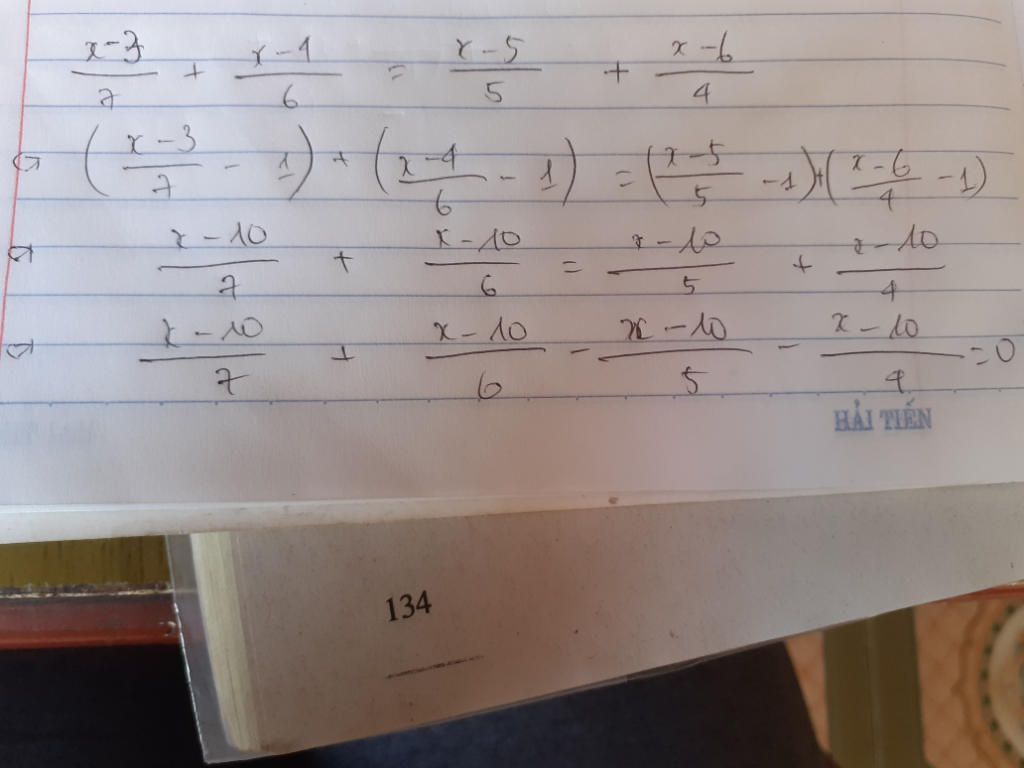 x-3/7 + x-4/6 = x-5/5 + x-6/4
⇔ (x-3/7 - 1) + (x-4/6 - 1) = (x-5/5 - 1) + (x-6/4 - 1)
⇔ x-10/7 + x-10/6 = x-10/5 + x-10/4
⇔ x-10/7 + x-10/6 - x-10/5 - x-10/4 = 0
HẢI TIẾN
134